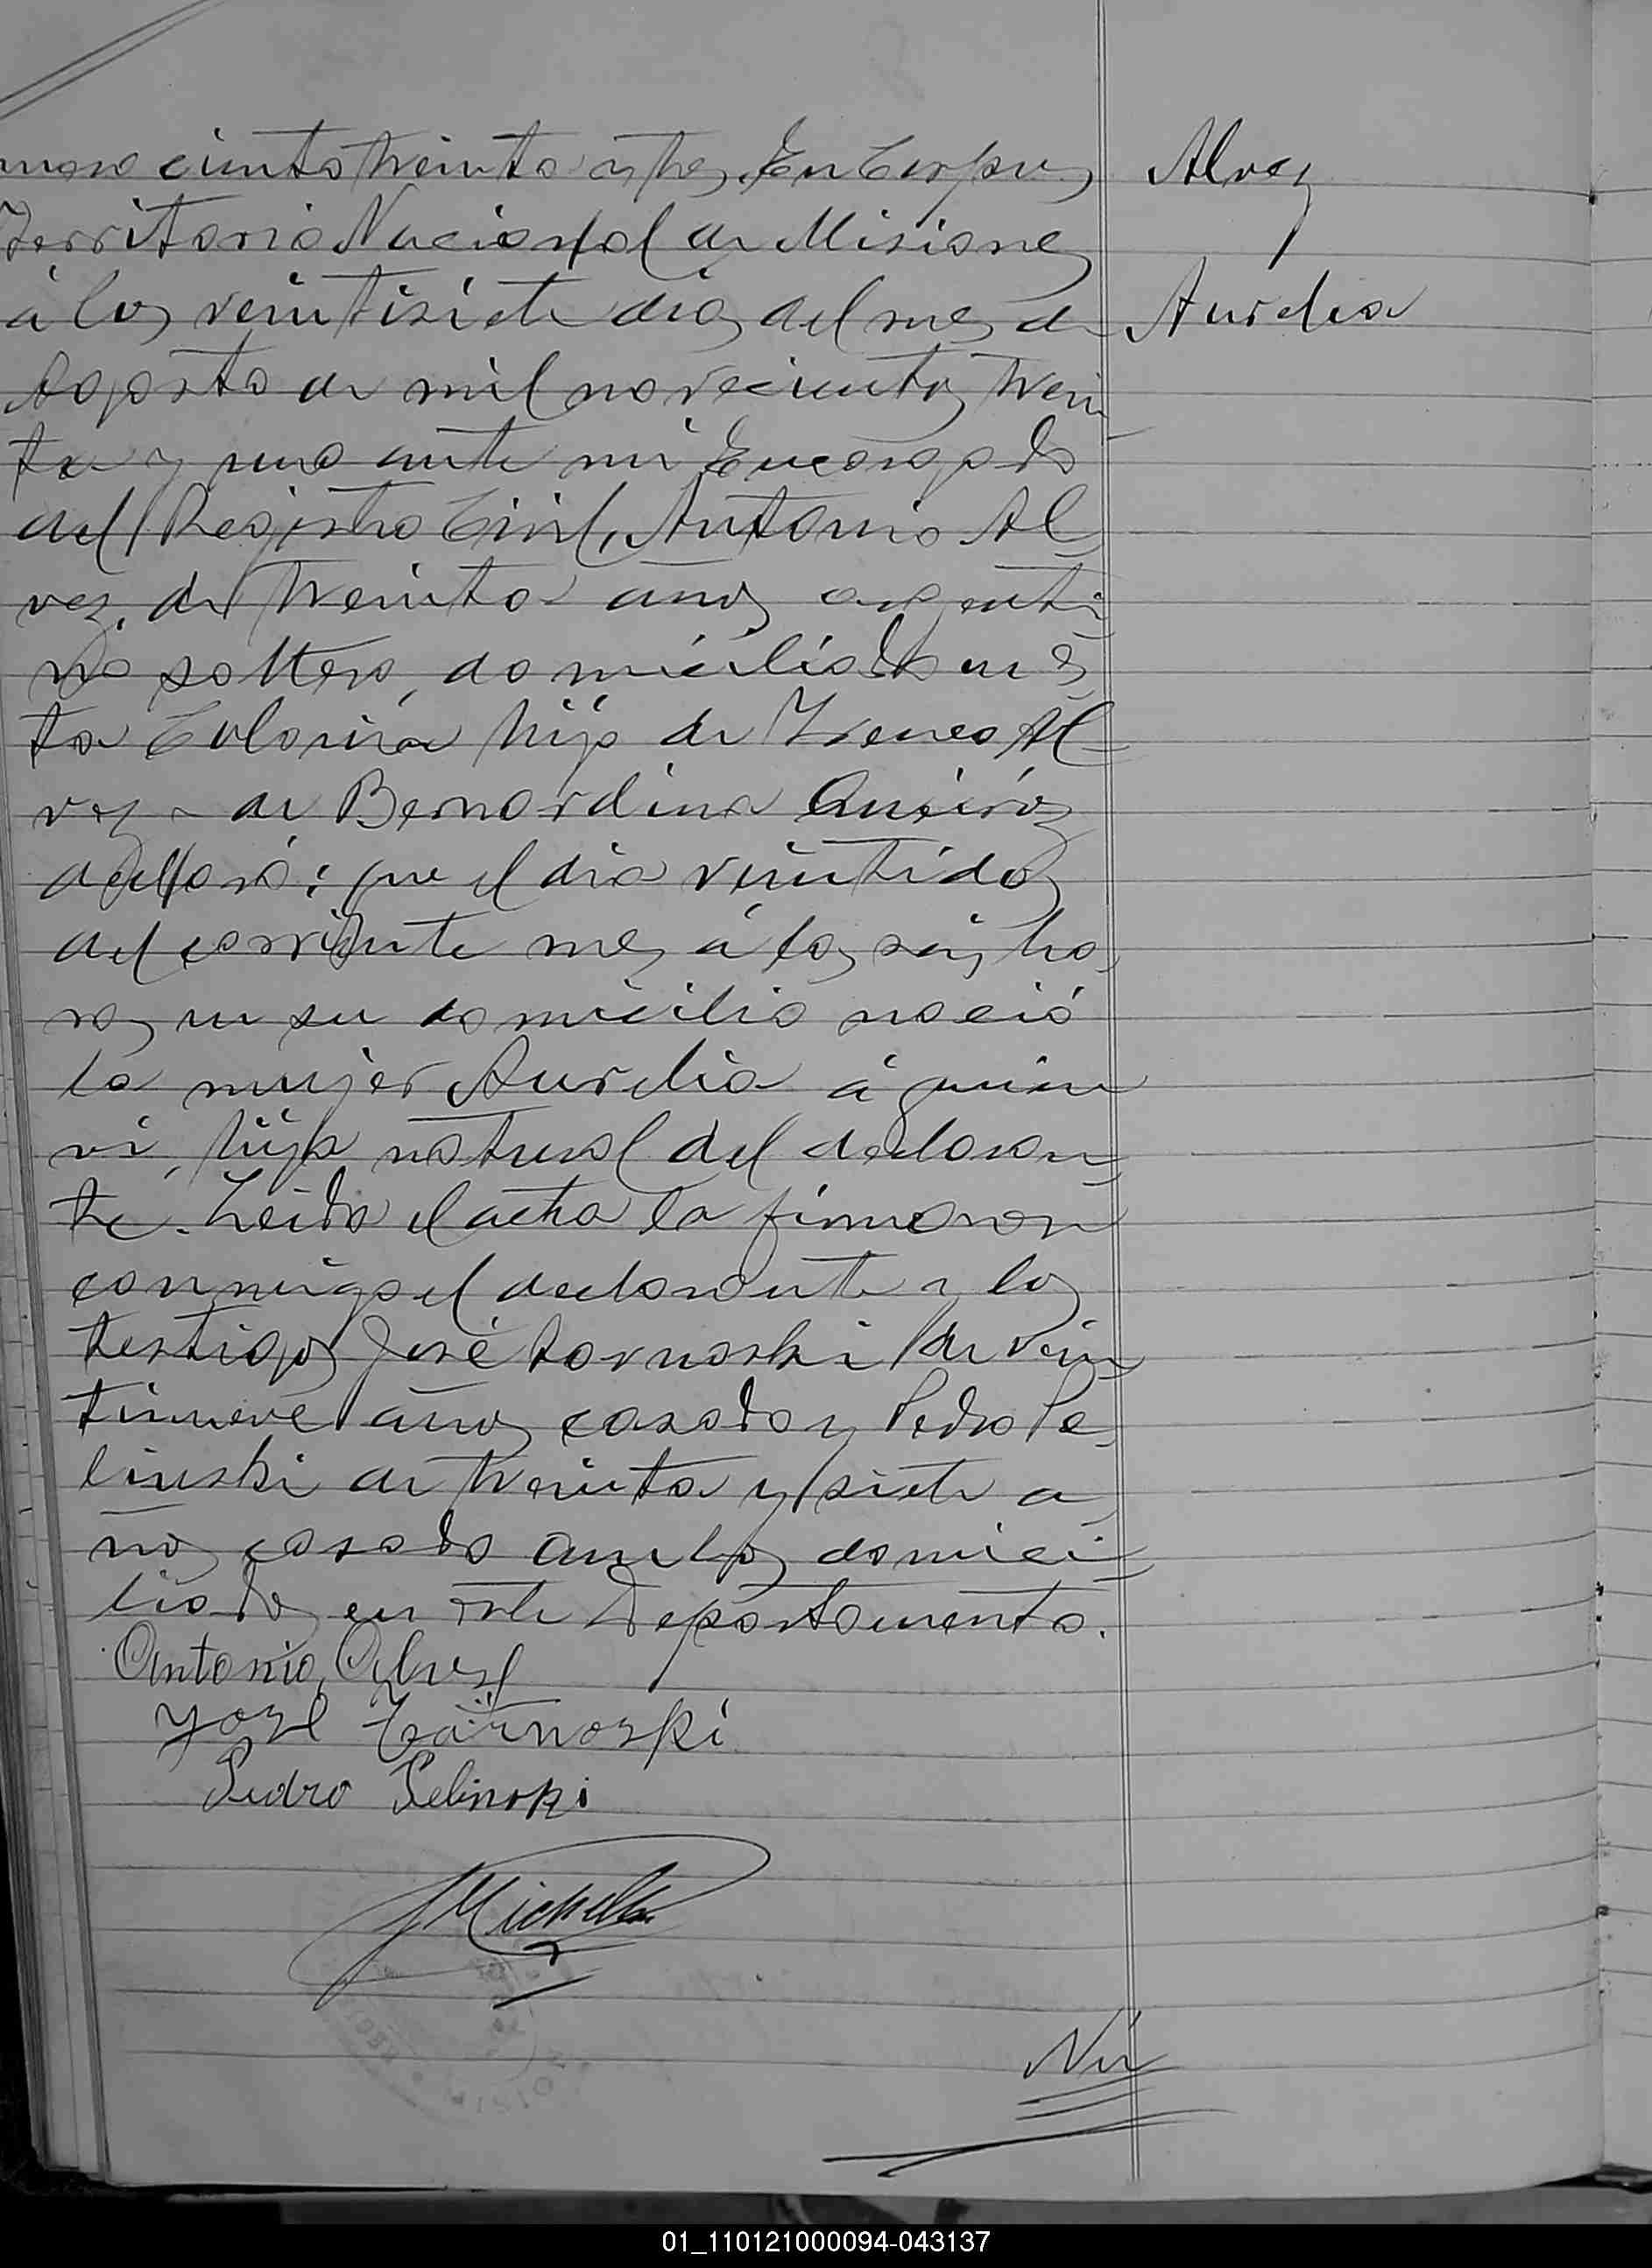 mero ciento treinta y tres. En Corpus
Alvez
Territorio Nacional de Misiones
á los veintisiete dias del mes de
Aurelia
Agosto de mil novecientos trein
ta y uno ante mi Encargado
del Registro Civil, Antonio Al
vez, de treinta años argenti
no soltero, domiciliado en es
ta Colonia hijo de Ireneo Al-
vez y de Bernardina
declaró: que el dia veintidos
del corriente mes á las seis ho
ras en su domicilio nació
la mujer Aurelia á quien
vi, hija natural del declaran
te. Leida el acta la firmaron
conmigo el declarante y los
testigos José Tarnoski de vein
tinueve años casado y Pedro Pe
linski de treinta y siete a
ños casado ambos domici
liados en este Departamento.
Antonio Alvez
Yosé Tarnoski
Pedro Pelinski
Nú
01_110121000094-043137